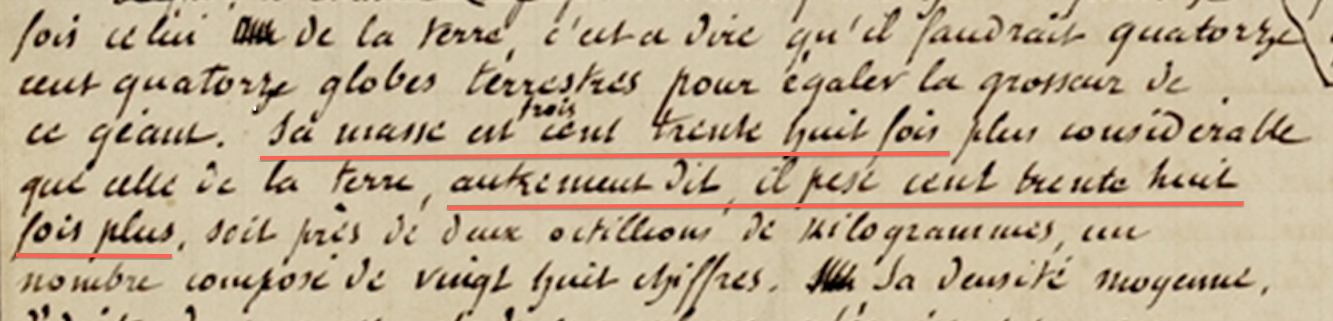 fois celui de la terre, c'est a dire qu'il faudrait quatorze
cent quatorze globes terrestres pour égaler la grosseur de
ce géant. Sa masse est trois cent trente huit fois plus considérable
que celle de la terre, autrement dit, il pèse cent trente huit
fois plus, soit près de deux octillions de kilogrammes, un
nombre composé de vingt huit chiffres. Sa densité moyenne,